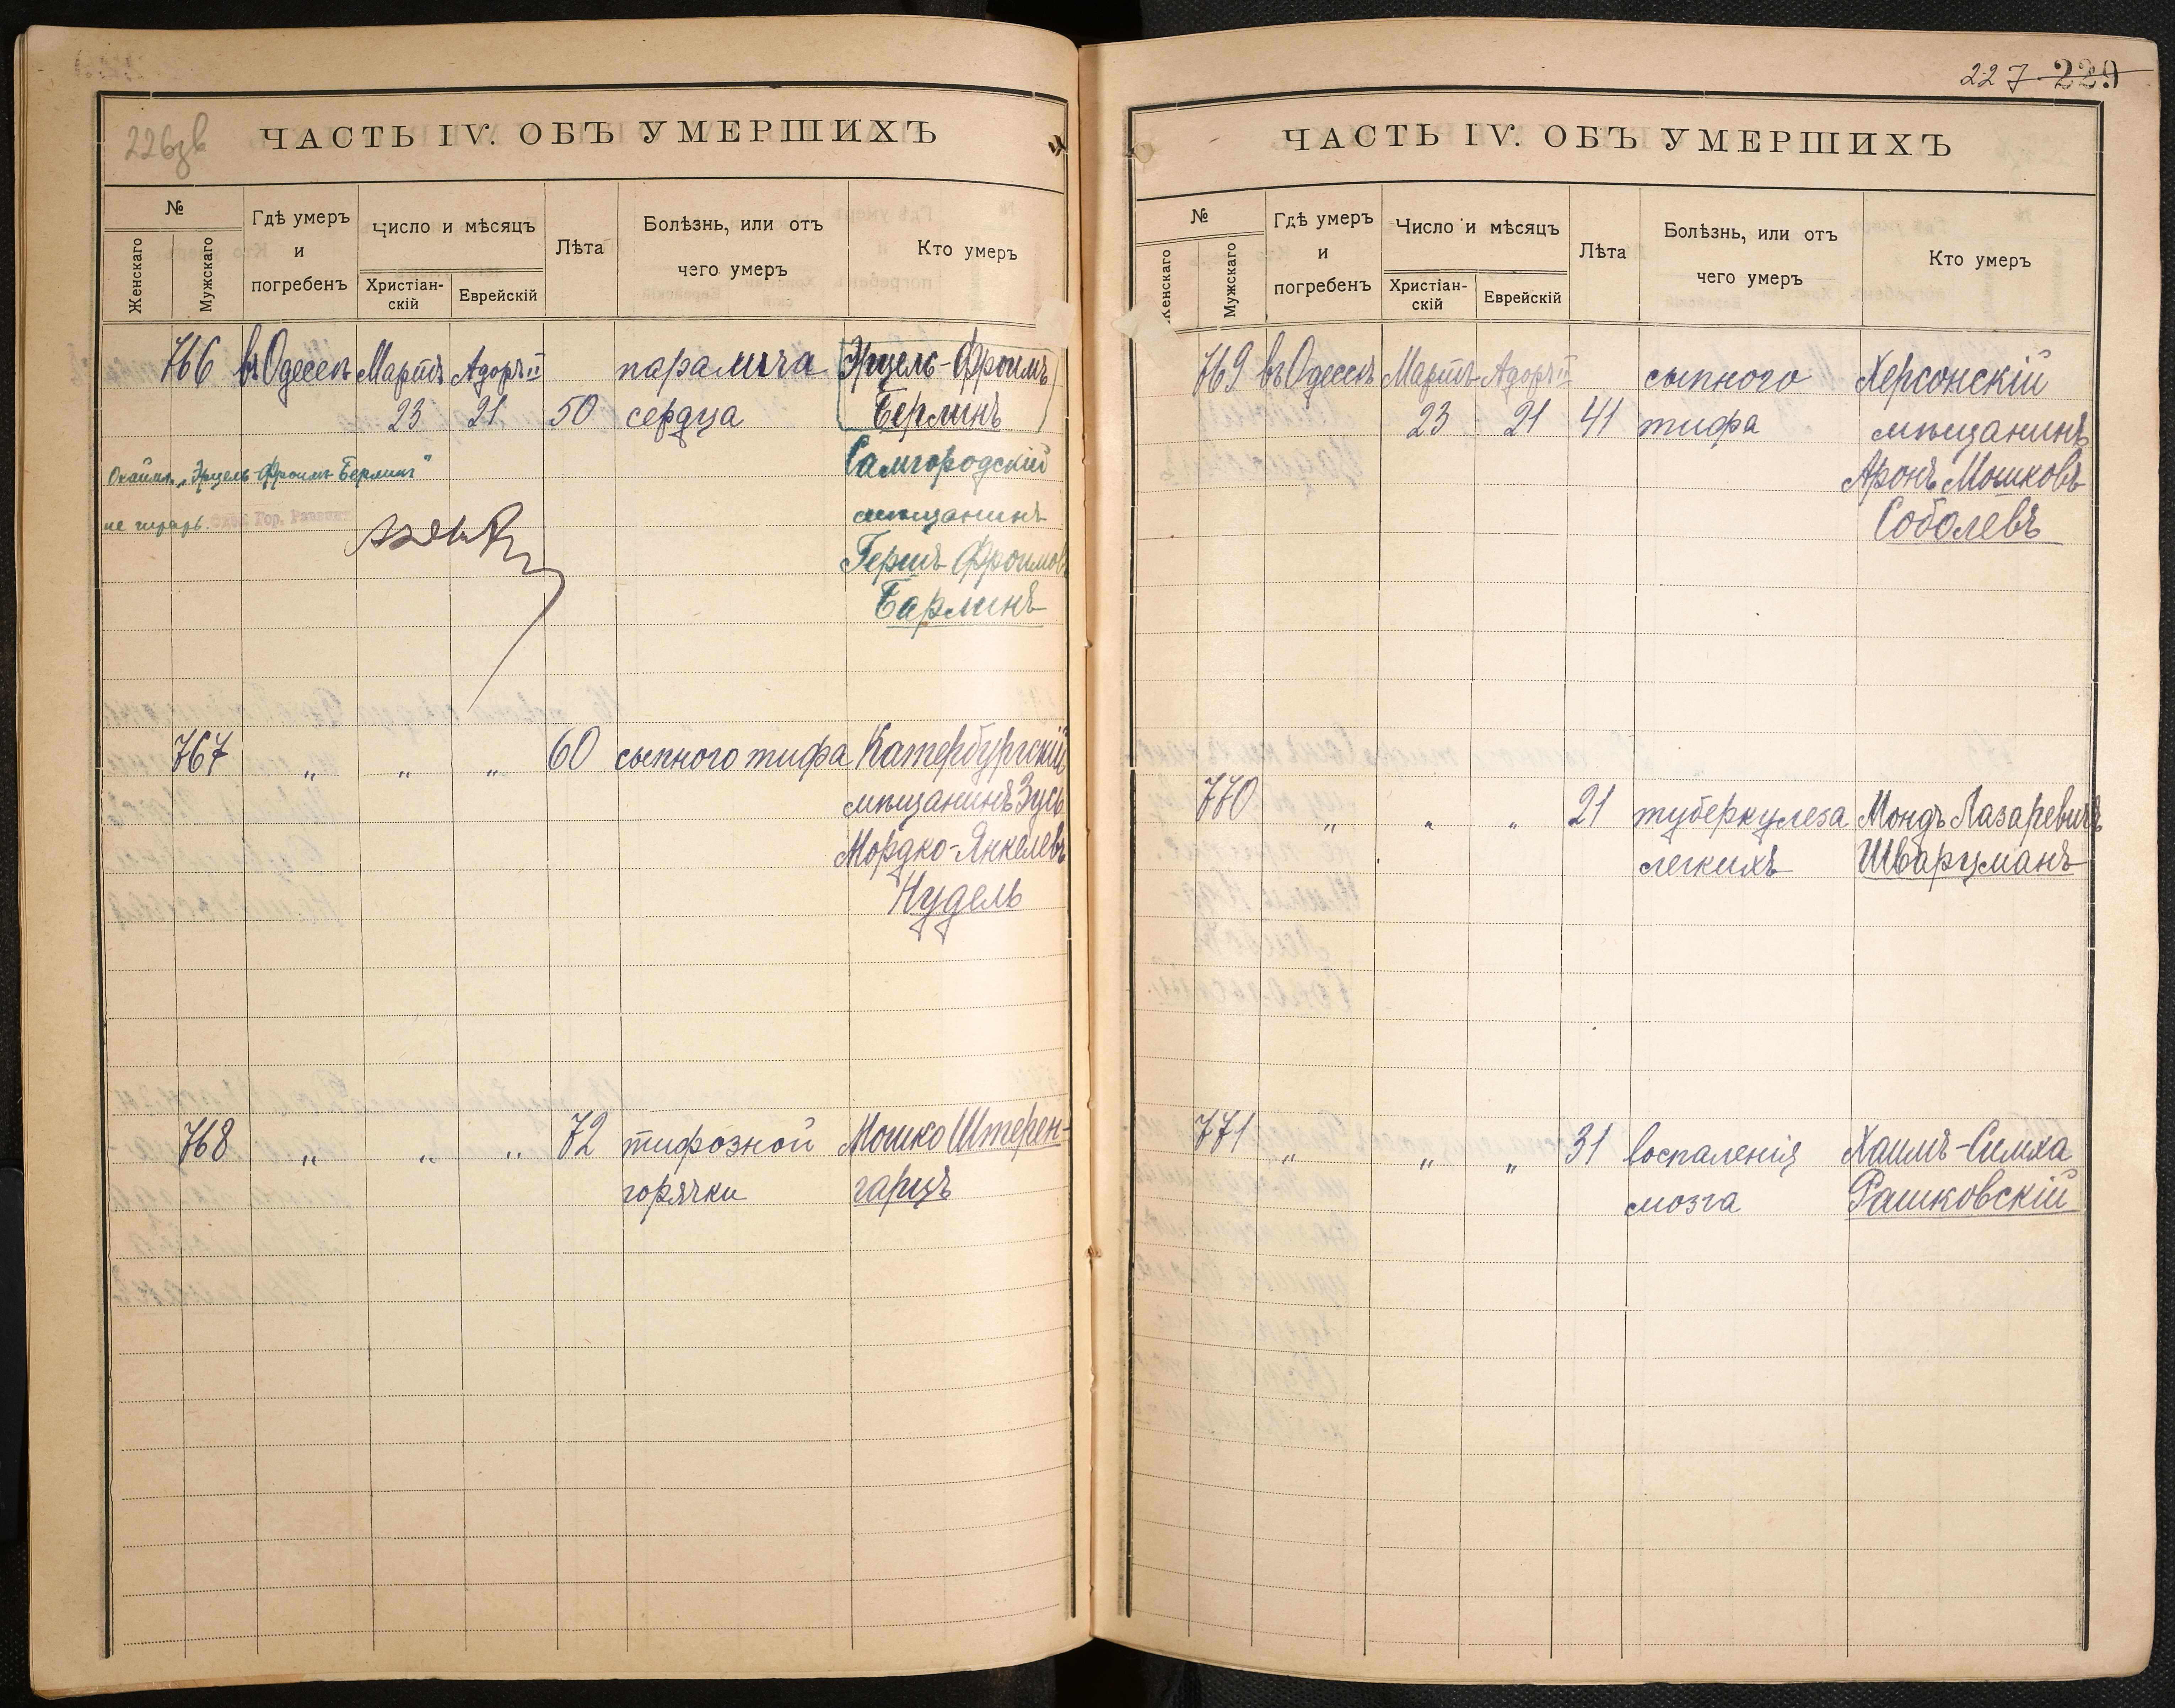 226зв
ЧАСТЬ IV. ОБЪ УМЕРШИХЪ
№
Женскаго
Мужскаго
Гдѣ умеръ
и
погребенъ
Число и мѣсяцъ
Христіан-
скій
Еврейскій
Лѣта
Болѣзнь, или отъ
чего умеръ
Кто умеръ
766 въ Одессѣ Мартъ Адоръ II паралича Эрцель-Фроимъ
23 21 50 сердца Берлинъ
Самгородскій
„Эрцель-Фроимъ Берлинъ"
мѣщанинъ
не читать
Гершъ Фроимовъ
Барлинъ
767 „ „ „ 60 сыпного тифа Катербургскій
мѣщанинъ Зусь
Мордко-Янкелевъ
Нудель
768 „ „ „ 72 тифозной Мошко Штерен-
горячки гарцъ
227 229
ЧАСТЬ IV. ОБЪ УМЕРШИХЪ
№
Женскаго
Мужскаго
Гдѣ умеръ
и
погребенъ
Число и мѣсяцъ
Христіан-
скій
Еврейскій
Лѣта
Болѣзнь, или отъ
чего умеръ
Кто умеръ
769 въ Одессѣ Мартъ Адоръ II сыпного Херсонскій
23 21 41 тифа мѣщанинъ
Аронъ Мошковъ
Соболевъ
770 „ „ „ 21 туберкулеза Мондъ Лазаревичъ
легкихъ Шварцманъ
771 „ „ „ 31 воспаленія Хаимъ-Симха
мозга Рашковскій